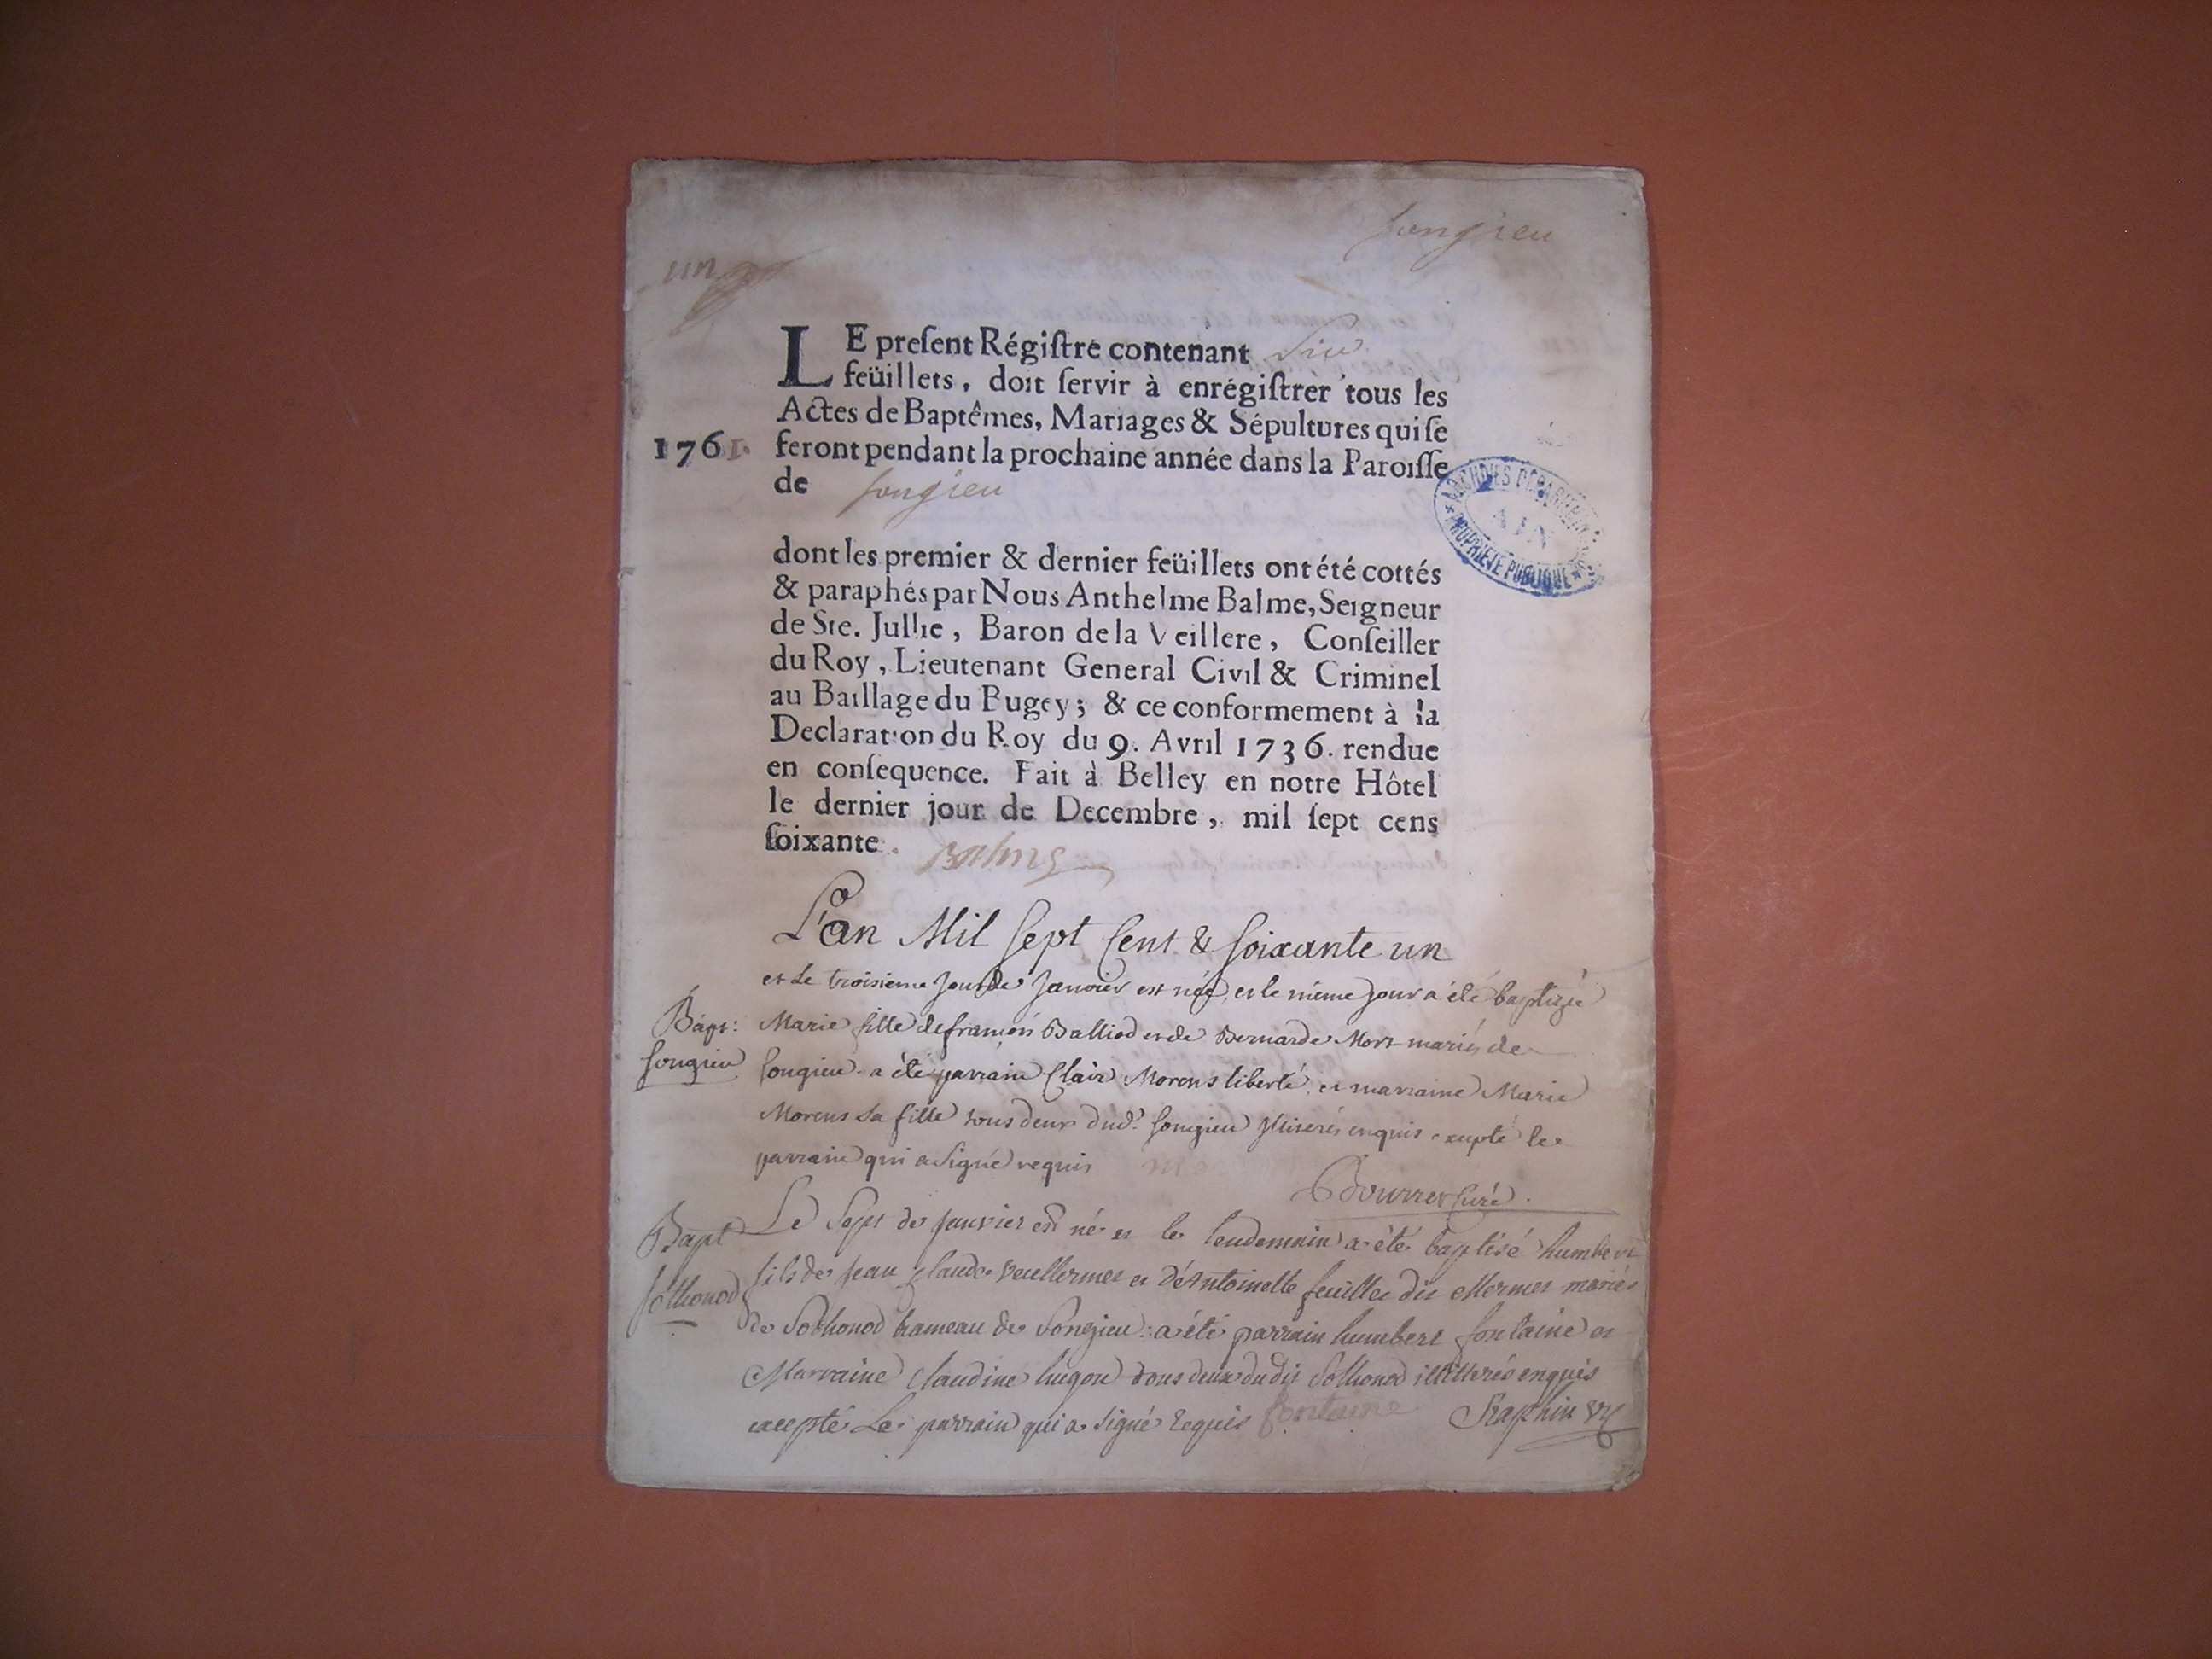 Songieu
un
LE preſent Régiſtre contenant Six
feüillets, doit ſervir à enrégiſtrer tous les
Actes de Baptêmes, Mariages & Sépultures qui ſe
1761. feront pendant la prochaine année dans la Paroiſſe
de Songieu
ARCHIVES DEPARTEMENTALES
AIN
PROPRIETE PUBLIQUE
dont les premier & dernier feüillets ont été cottés
& paraphés par Nous Anthelme Balme, Seigneur
de Ste. Jullie, Baron de la Veillere, Conſeiller
du Roy, Lieutenant General Civil & Criminel
au Baillage du Bugey; & ce conformement à la
Declaration du Roy du 9. Avril 1736. rendue
en conſequence. Fait à Belley en notre Hôtel
le dernier jour de Decembre, mil ſept cens
ſoixante. Balme
L'an Mil sept Cent & soixante un
et le troisieme jour de janvier est née, et le même jour a été baptizée
Bapt: Marie fille de françois Balliod et de Bernarde Mort mariés de
Songieu Songieu a été parrain Clair Morens liberté et marraine Marie
Morens sa fille tous deux dud. Songieu enquis excepté le
parrain qui a signé requis
Bourrer Curé.
Le Sept de janvier est né et le lendemain a été baptisé humbert
Bapt fils de jean claude Veullermet et D'Antoinette feuillet dit Mermet mariés
Sothonod de Sothonod hameau de Songieu: a été parrain humbert fontaine et
Marraine Claudine hugon tous deux dudit Sothonod illitterés enquis
excepté Le parrain qui a signé Requis fontaine Seraphin